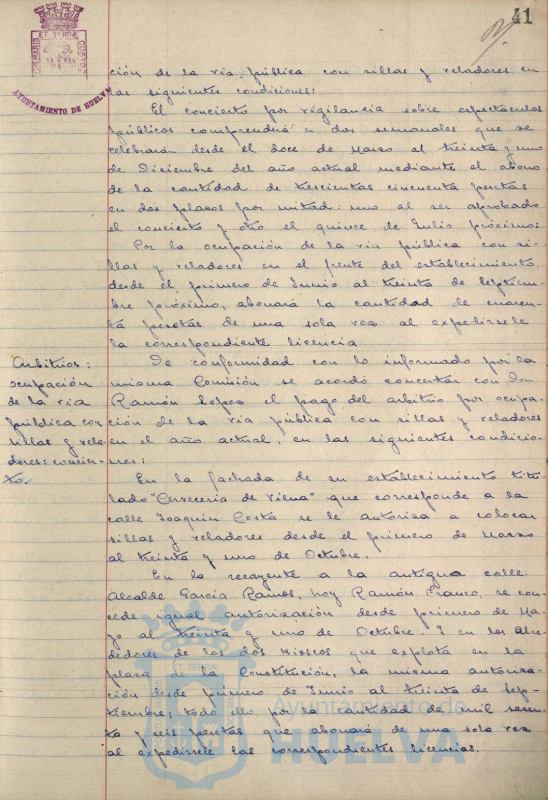 41
PORTUS MARIS ET TERRAE CUSTODIA
AYUNTAMIENTO DE HUELVA
ción de la via pública con sillas y veladores en
las siguientes condiciones:
El concierto por vigilancia sobre espectáculos
públicos comprenderá a dos semanales que se
celebrarán desde el doce de Marzo al treinta y uno
de Diciembre del año actual mediante el abono
de la cantidad de trescientas cincuenta pesetas
en dos plazos por mitad: uno al ser aprobado
el concierto y otro el quince de Julio próximo:
Por la ocupación de la via pública con si-
llas y veladores en el frente del establecimiento,
desde el primero de Junio al treinta de Septiem-
bre próximo, abonará la cantidad de cuaren-
ta pesetas de una sola vez al expedirsele
la correspondiente licencia
Arbitrios:
ocupación
de la via
pública con
sillas y vela-
dores: concier-
to.
De conformidad con lo informado por la
misma Comisión se acordó concertar con Don
Ramón Lopez el pago del arbitrio por ocupa-
ción de la via pública con sillas y veladores
en el año actual, en las siguientes condicio-
nes:
En la fachada de su establecimiento titu-
lado "Cerveceria de Viena" que corresponde a la
calle Joaquin Costa se le autoriza a colocar
sillas y veladores desde el primero de Marzo
al treinta y uno de Octubre.
En la recayente a la antigua calle
Alcalde Garcia Ramos, hoy Ramón Franco, se con-
cede igual autorización desde primero de Ma-
yo al treinta y uno de Octubre. Y en los alre-
dedores de los dos kioscos que explota en la
plaza de la Constitución, la misma autoriza-
ción desde primero de Junio al treinta de Sep-
tiembre; todo ello por la cantidad de mil sesen-
ta y seis pesetas que abonará de una sola vez
al expedirsele las correspondientes licencias.
Ayuntamiento de
HUELVA